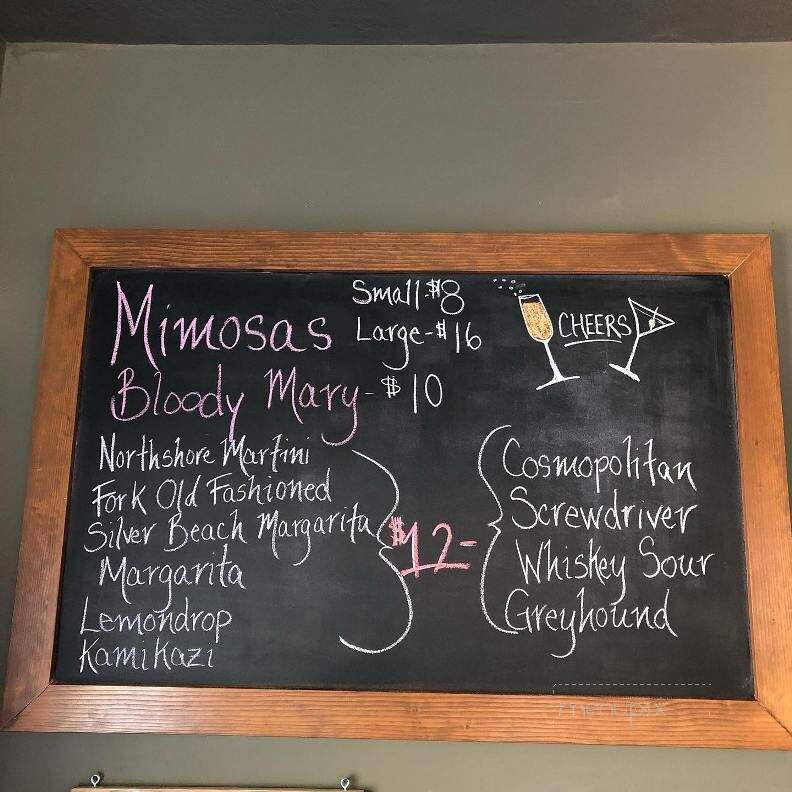 Mimosas
Small-$8
Large-$16
CHEERS
Bloody Mary-$10
Northshore Martini
Fork Old Fashioned
Silver Beach Margarita
Margarita
Lemondrop
Kamikazi
$12-
Cosmopolitan
Screwdriver
Whiskey Sour
Greyhound
menupix